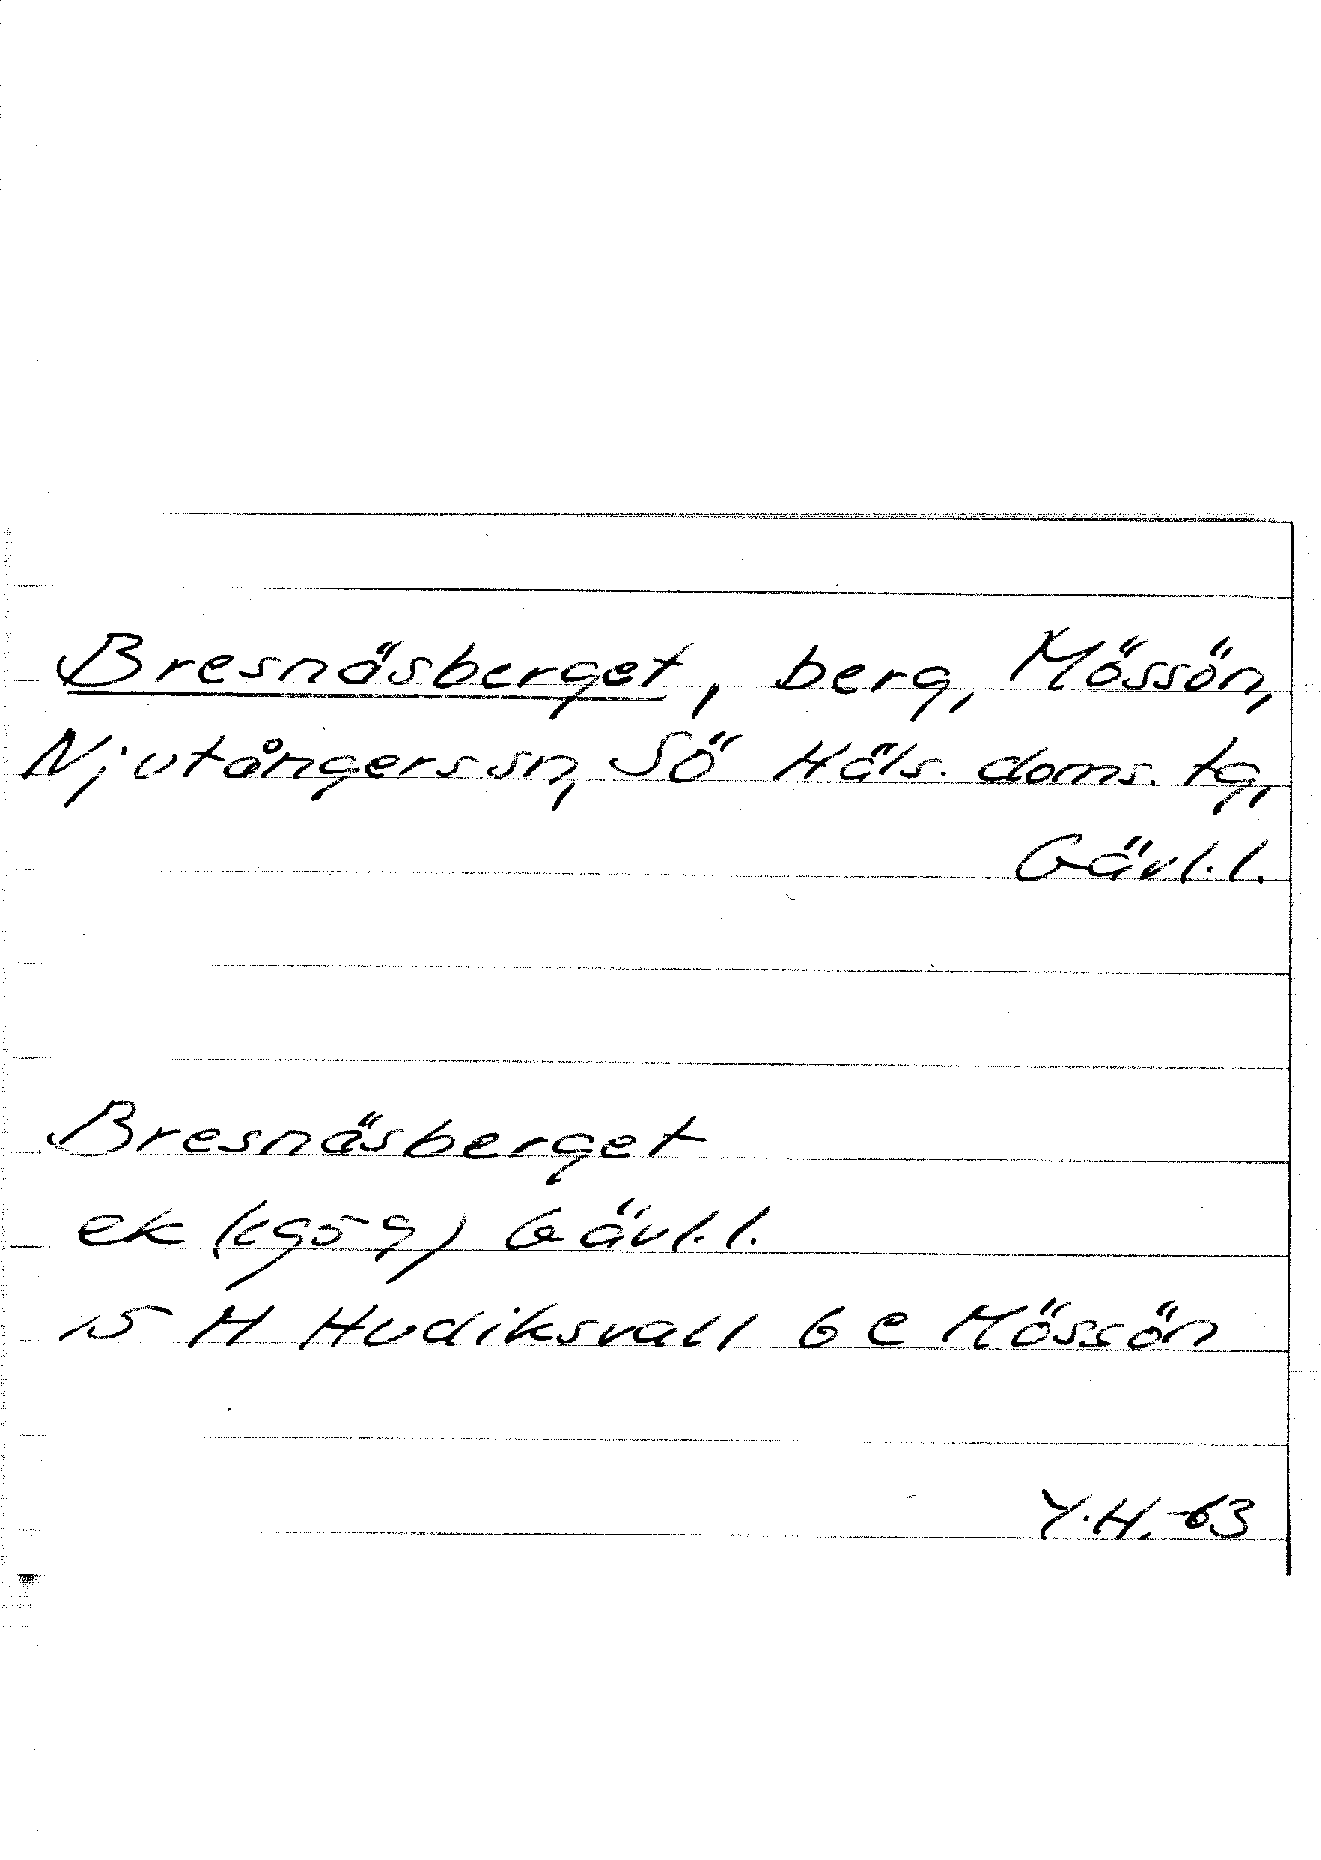 Bresnäsberget, berg, Mössön,
Njutångers sn, Sö Häls. doms. tg,
Gävl.l.
Bresnäsberget
ek (1959) Gävl.l.
15 H Hudiksvall 6 e Mössön
Y.H. -63